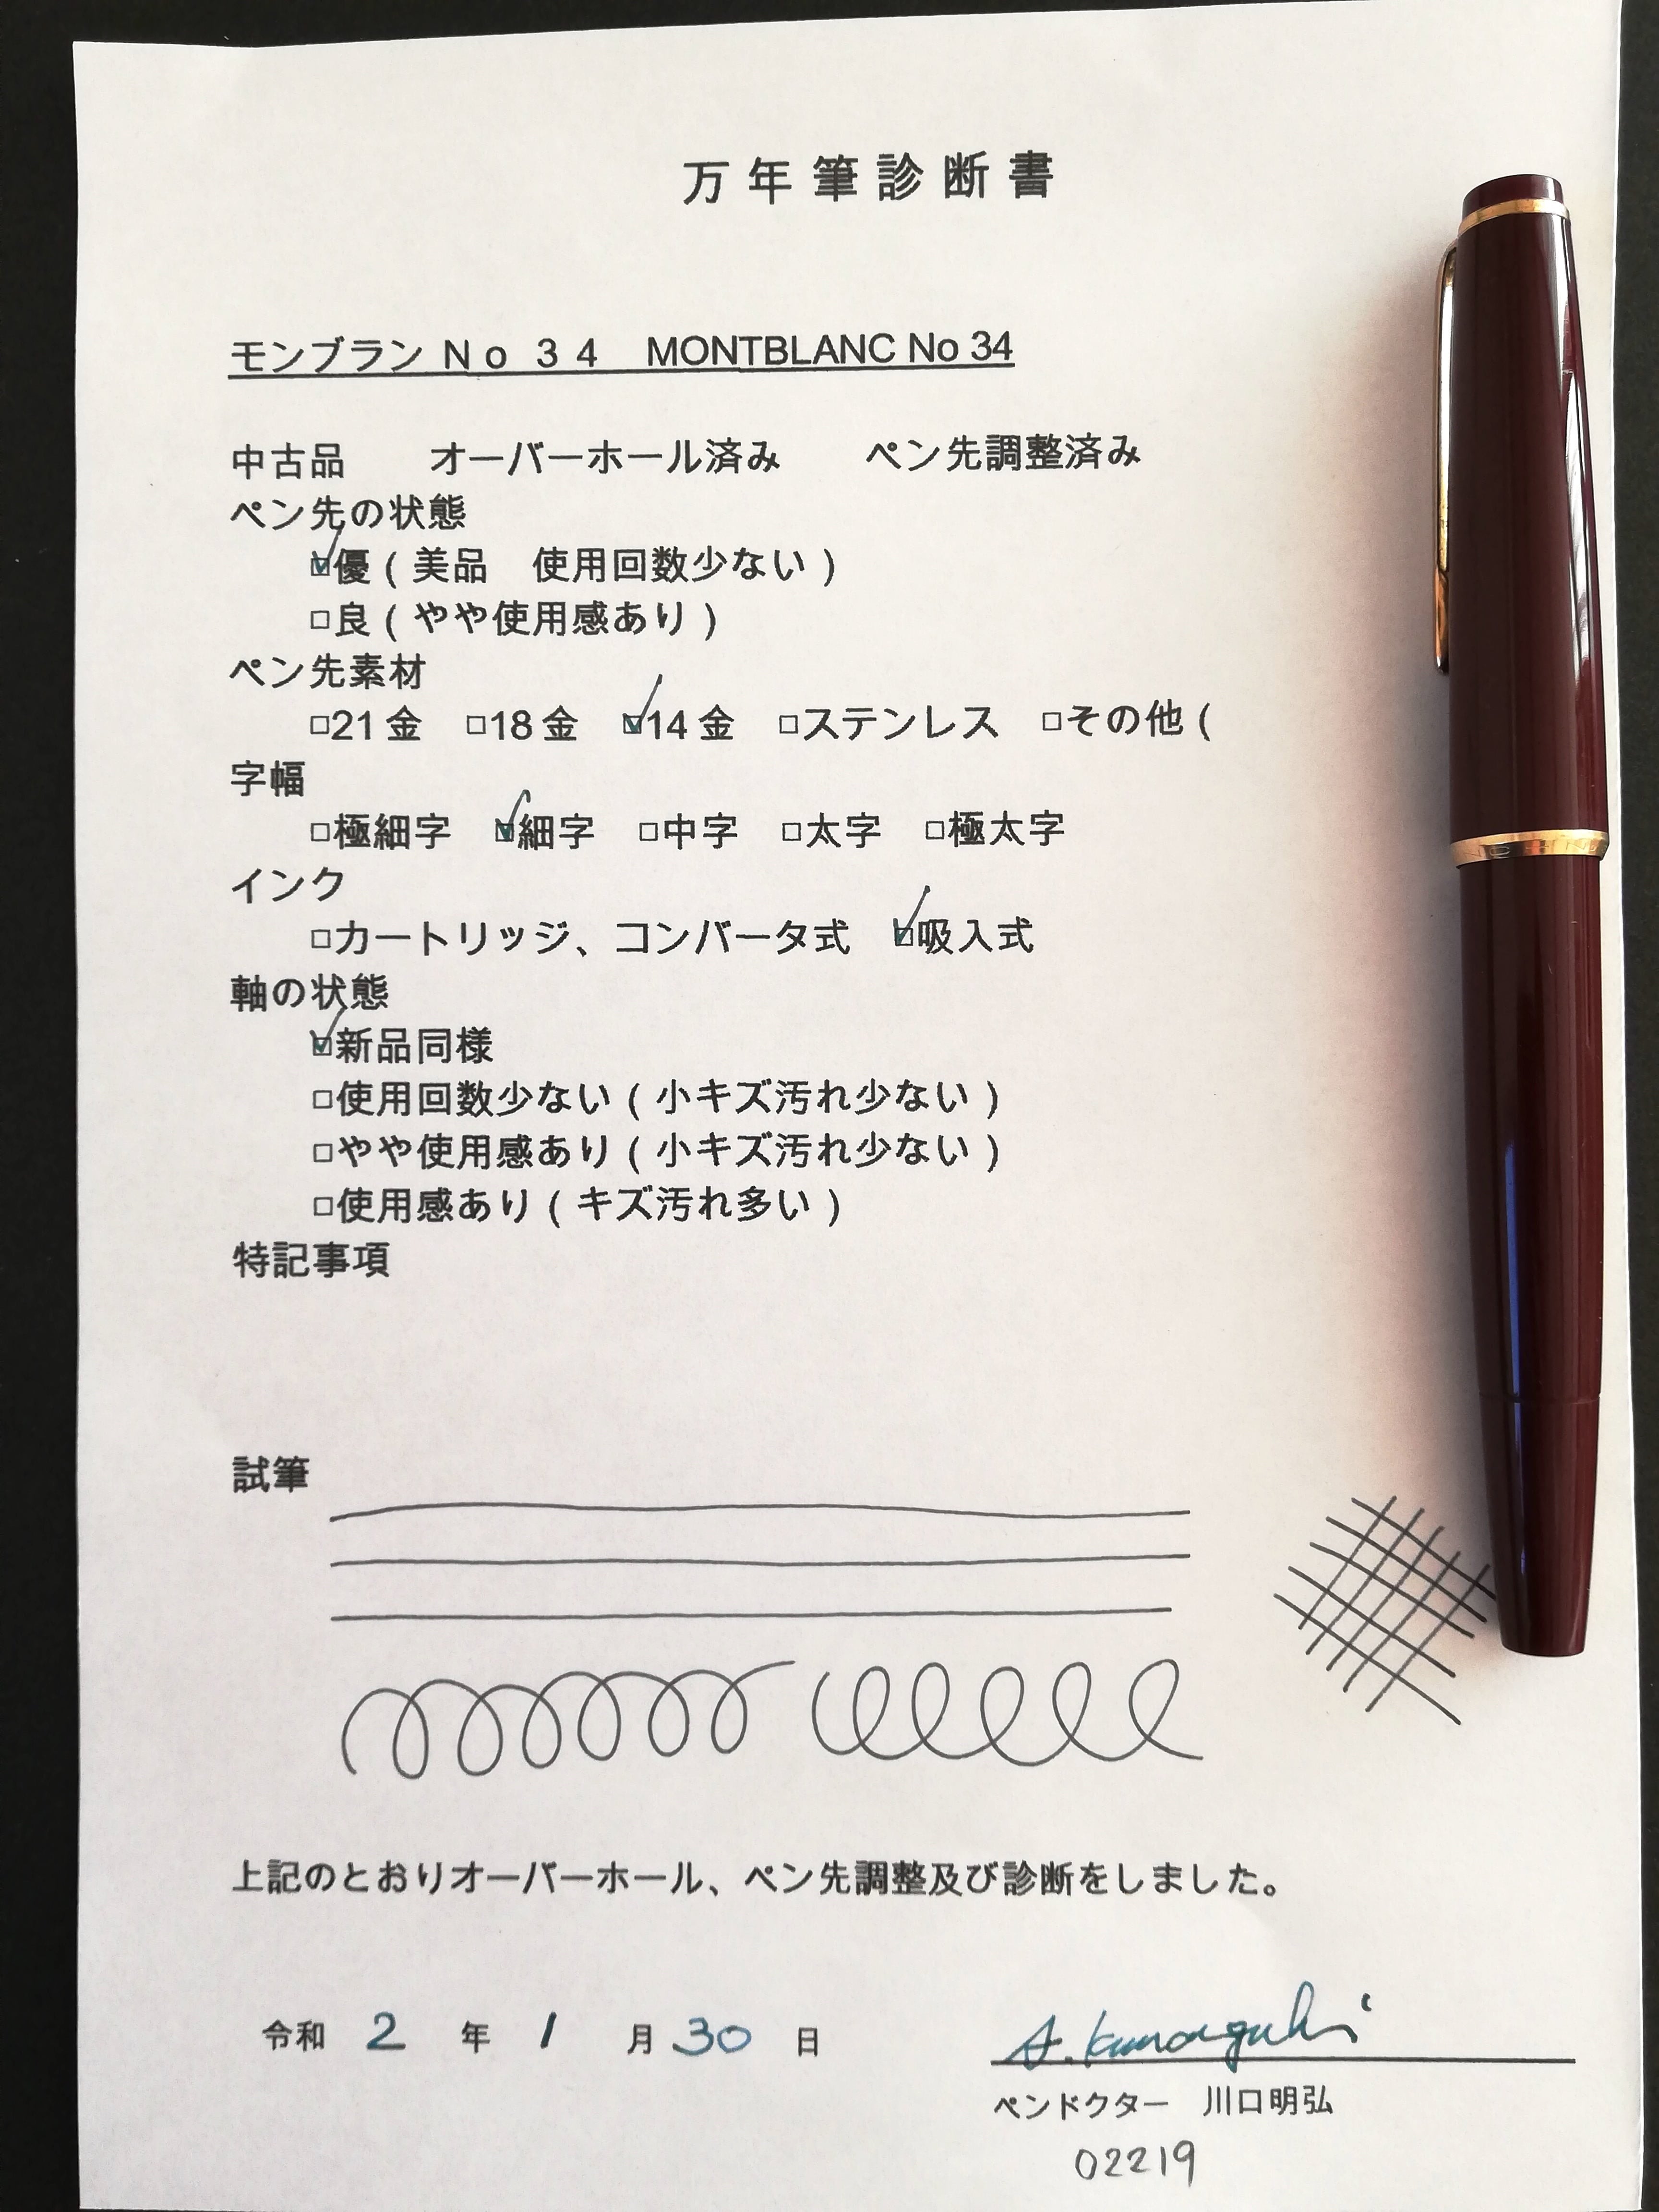 万年筆診断書
モンブランＮｏ３４　MONTBLANC No 34
中古品　　オーバーホール済み　　ペン先調整済み
ペン先の状態
☑優（美品　使用回数少ない）
□良（やや使用感あり）
ペン先素材
□21金　□18金　☑14金　□ステンレス　□その他（
字幅
□極細字　☑細字　□中字　□太字　□極太字
インク
□カートリッジ、コンバータ式　☑吸入式
軸の状態
☑新品同様
□使用回数少ない（小キズ汚れ少ない）
□やや使用感あり（小キズ汚れ少ない）
□使用感あり（キズ汚れ多い）
特記事項
試筆
上記のとおりオーバーホール、ペン先調整及び診断をしました。
令和　2　年　1　月　30　日
A. Kawaguchi
ペンドクター　川口明弘
02219